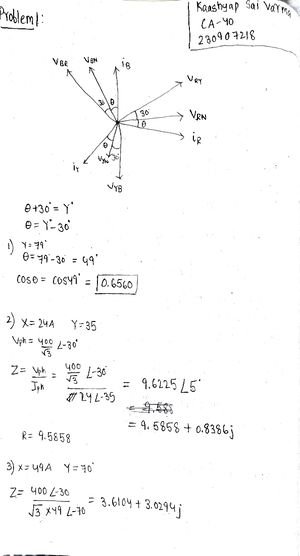 Problem 1:
Kaashyap Sai Varma
CA-40
230907218
VBR VBN iB
VRY
30° θ
30°
VRN
θ
iR
θ
30°
iY VYN
VYB
θ+30° = Y°
θ = Y°-30°
1) Y=79°
θ = 79°-30° = 49°
cosθ = cos49° = 0.6560
2) X=24A Y=35
Vph = 400/√3 ∠-30°
Z = Vph/Iph = 400/√3 ∠-30° / 24∠-35 = 9.6225∠5°
= 9.588
= 9.5858 + 0.8386j
R = 9.5858
3) X=49A Y=70°
Z = 400∠-30 / √3 ×49 ∠-70 = 3.6104 + 3.0294j